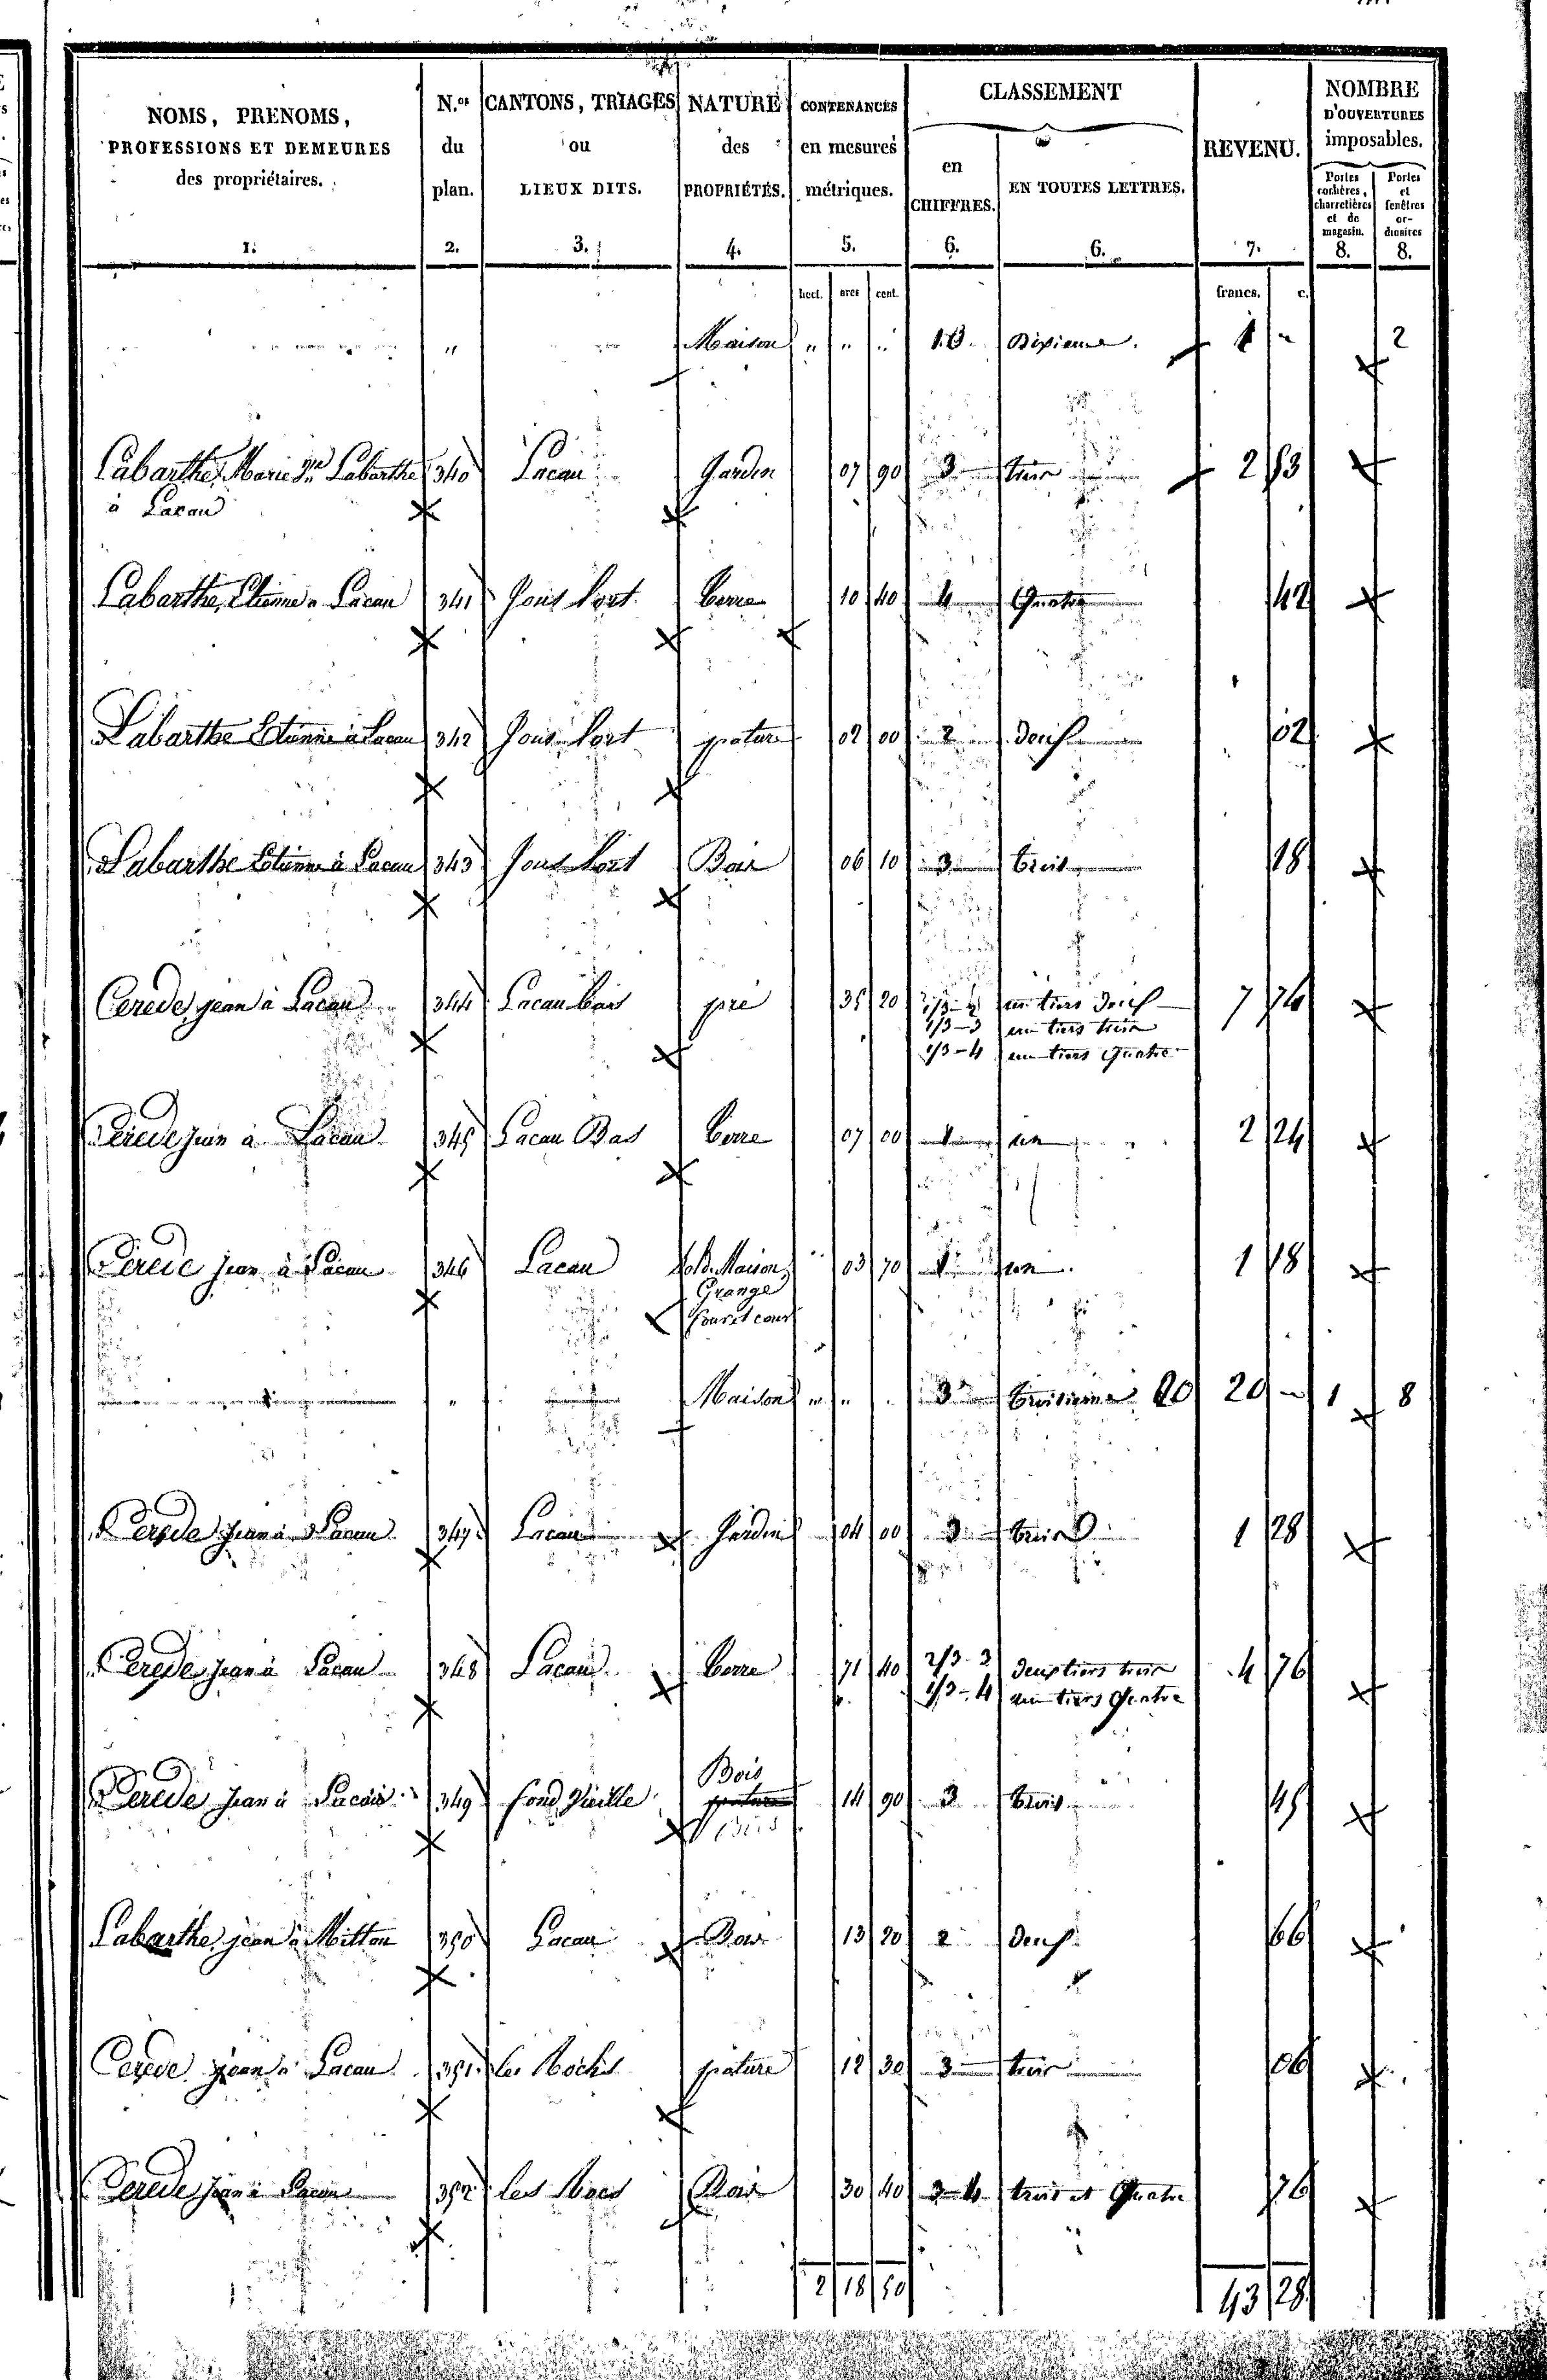 NOMS, PRENOMS, PROFESSIONS ET DEMEURES des propriétaires. 1.
N.os du plan. 2.
CANTONS, TRIAGES ou LIEUX DITS. 3.
NATURE des PROPRIÉTÉS. 4.
CONTENANCES en mesures métriques. 5.
CLASSEMENT
en CHIFFRES. 6.
EN TOUTES LETTRES. 6.
REVENU. 7.
NOMBRE D'OUVERTURES imposables.
Portes cochères, charretières et de magasin. 8.
Portes et fenêtres ordinaires 8.
hect. ares cent. francs. c.
" Maison " " " 10. Dixieme. 1 " 2
Labarthe, Marie Labarthe 340 Lacau Jardin 07 90 3 trois 2 53
à Lacau
Labarthe, Etienne à Lacau 341 Terre 10 40 4 Quatre 42
Labarthe Etienne à Lacau 342 pature 02 00 2 deux 02
Labarthe Etienne à Lacau 343 Bois 06 10 3 trois 18
Cerede jean à Lacau 344 Lacau bas pré 35 20 1/3-2 un tiers deux 7 74
1/3-3 un tiers trois
1/3-4 un tiers Quatre
Cerede jean à Lacau 345 Lacau Bas Terre 07 00 1 un 2 24
Cerede jean à Lacau 346 Lacau Sol de Maison, 03 70 1 un 1 18
Grange
four et cour
" Maison " " 3e troisieme 20 20 " 1 8
Cerede jean à Lacau 347 Lacau Jardin 04 00 3 trois 1 28
Cerede jean à Lacau 348 Lacau Terre 71 40 2/3-3 deux tiers trois 4 76
1/3-4 un tiers Quatre
Bois
Cerede jean à Lacau 349 fond Vieille pature 14 90 3 trois 45
Bois
Labarthe jean à Mitton 350 Lacau Bois 13 20 2 deux 66
Cerede jean à Lacau 351 les pature 12 30 3 trois 06
Cerede jean à Lacau 352 les Bois 30 40 3-4 trois et Quatre 76
2 18 50 43 28